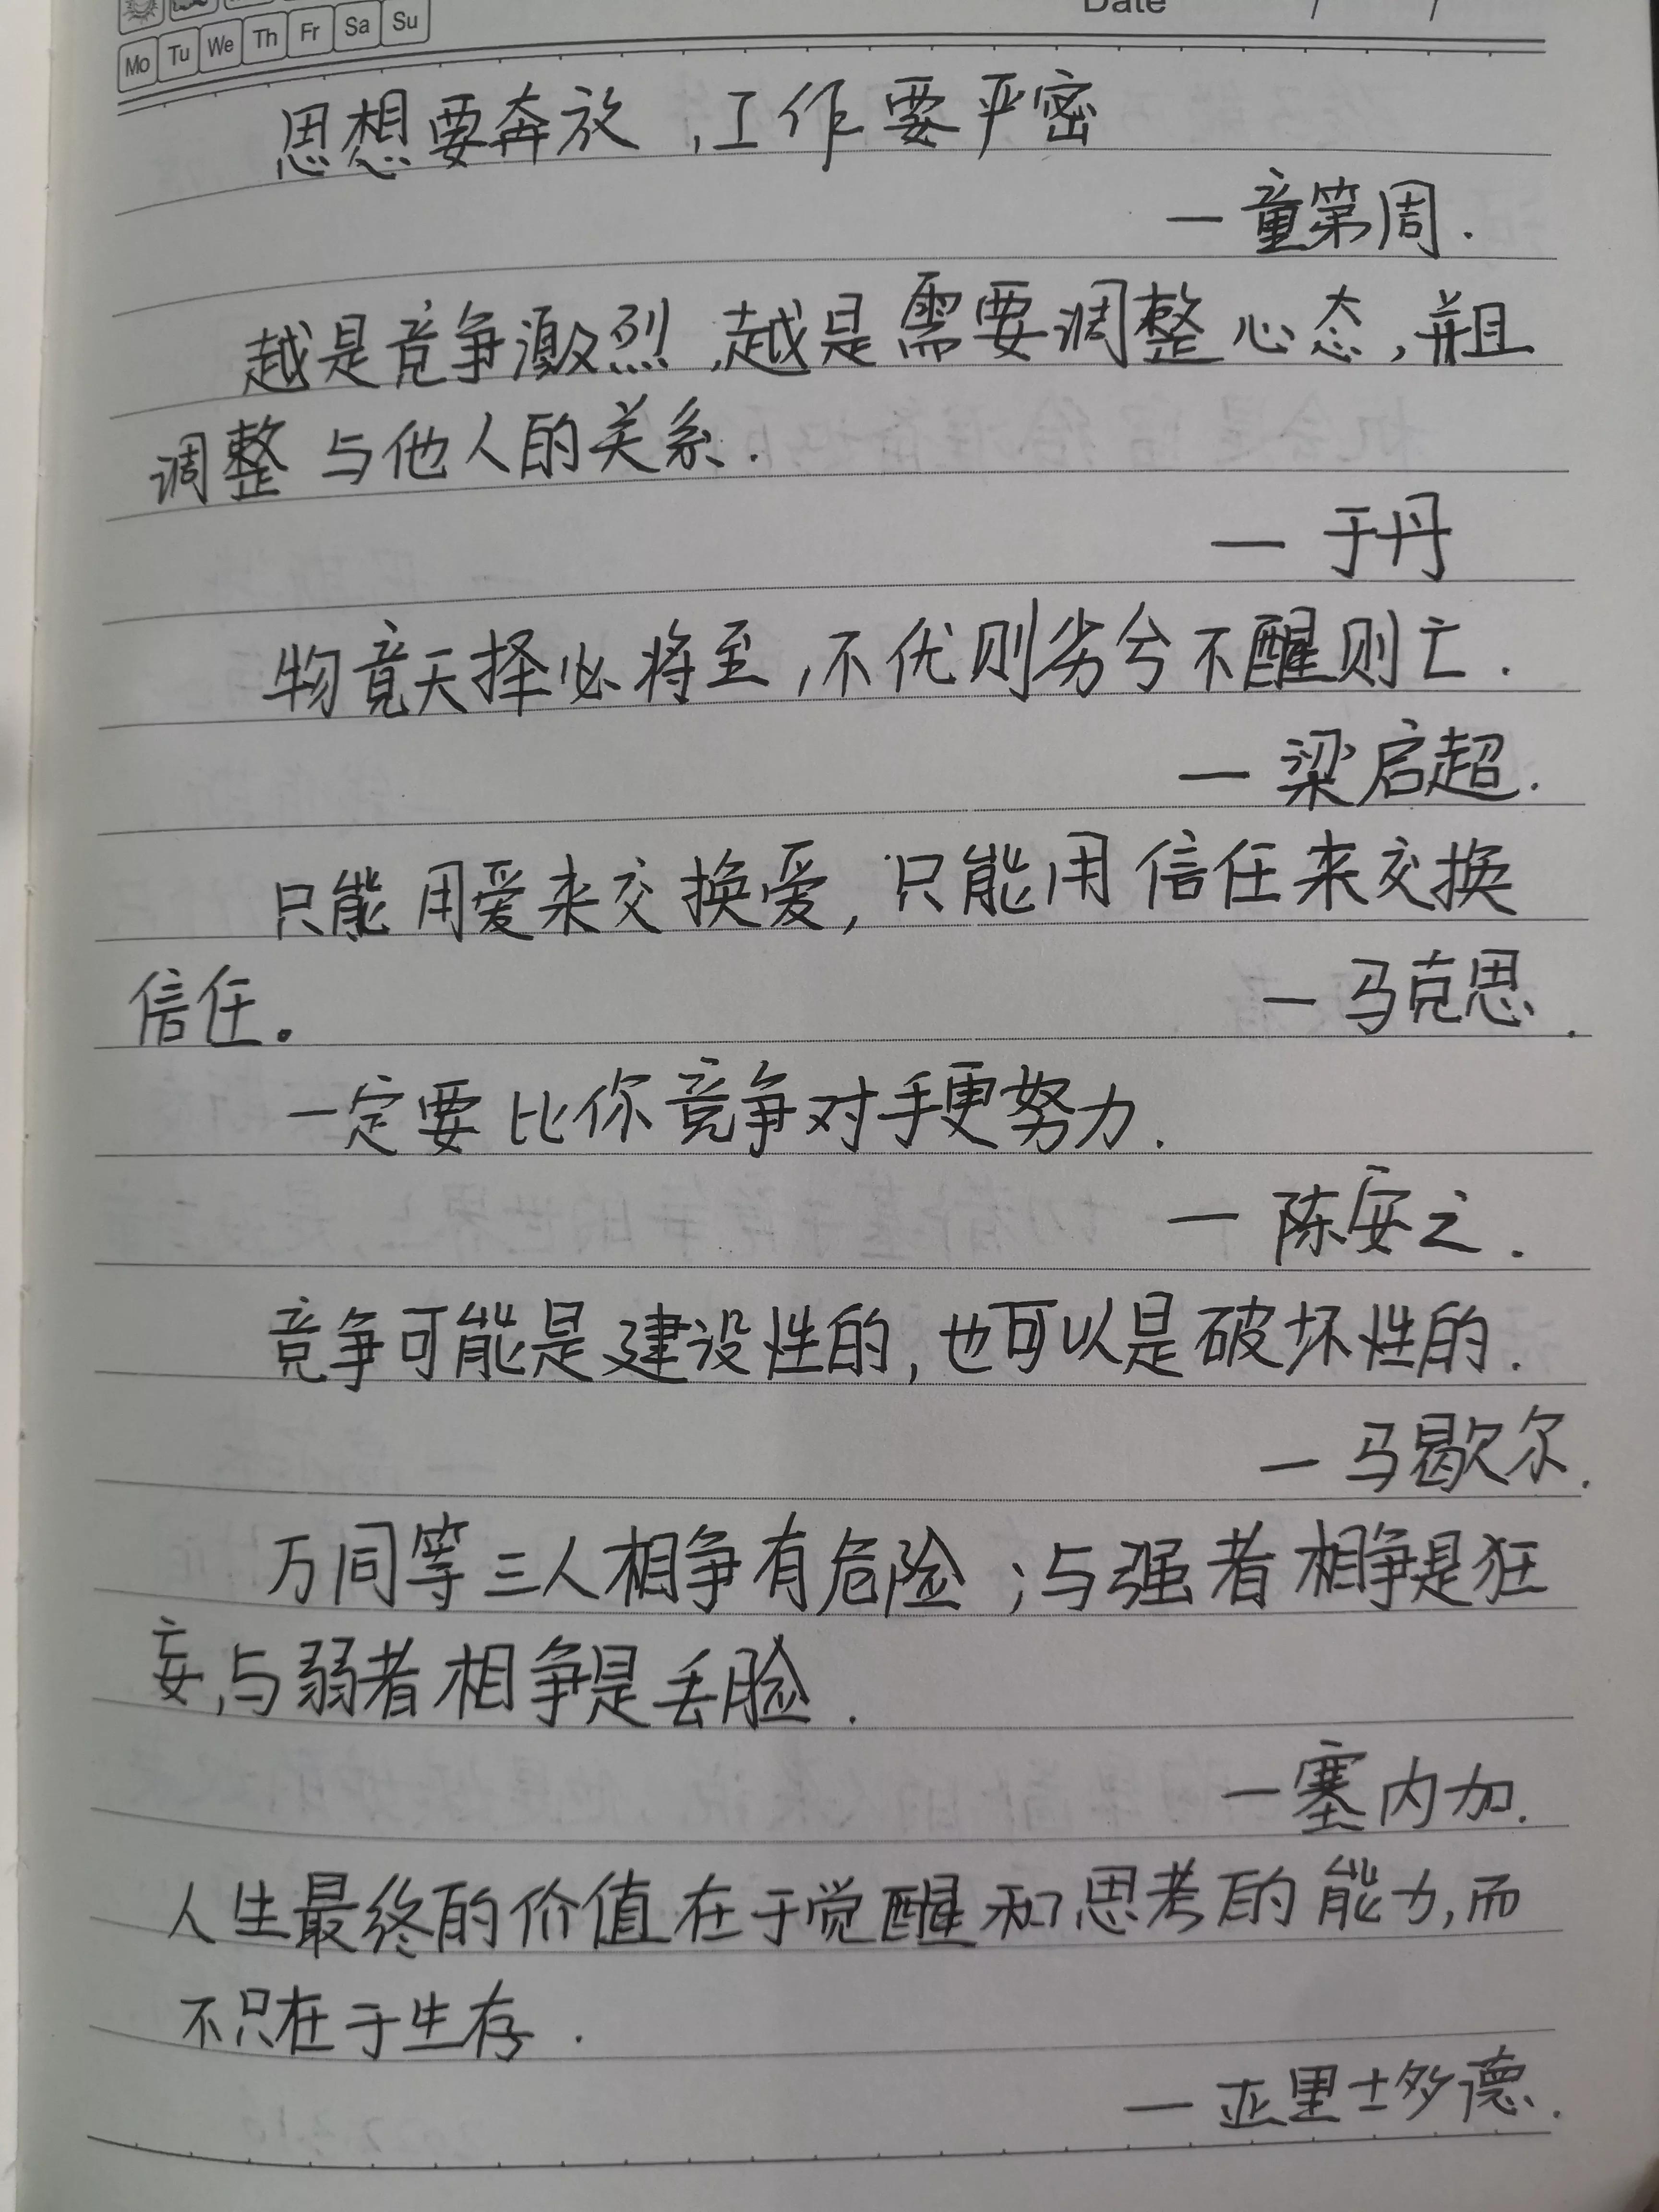 Date / /
Mo Tu We Th Fr Sa Su
思想要奔放,工作要严密
—童第周.
越是竞争激烈,越是需要调整心态,并且
调整与他人的关系.
—于丹
物竟天择必将至,不优则劣兮不醒则亡.
—梁启超.
只能用爱来交换爱,只能用信任来交换
信任。 —马克思.
一定要比你竞争对手更努力.
—陈安之.
竞争可能是建设性的,也可以是破坏性的.
—马歇尔.
万同等三人相争有危险;与强者相争是狂
妄,与弱者相争是丢脸.
—塞内加.
人生最终的价值在于觉醒和思考的能力,而
不只在于生存.
—亚里士多德.